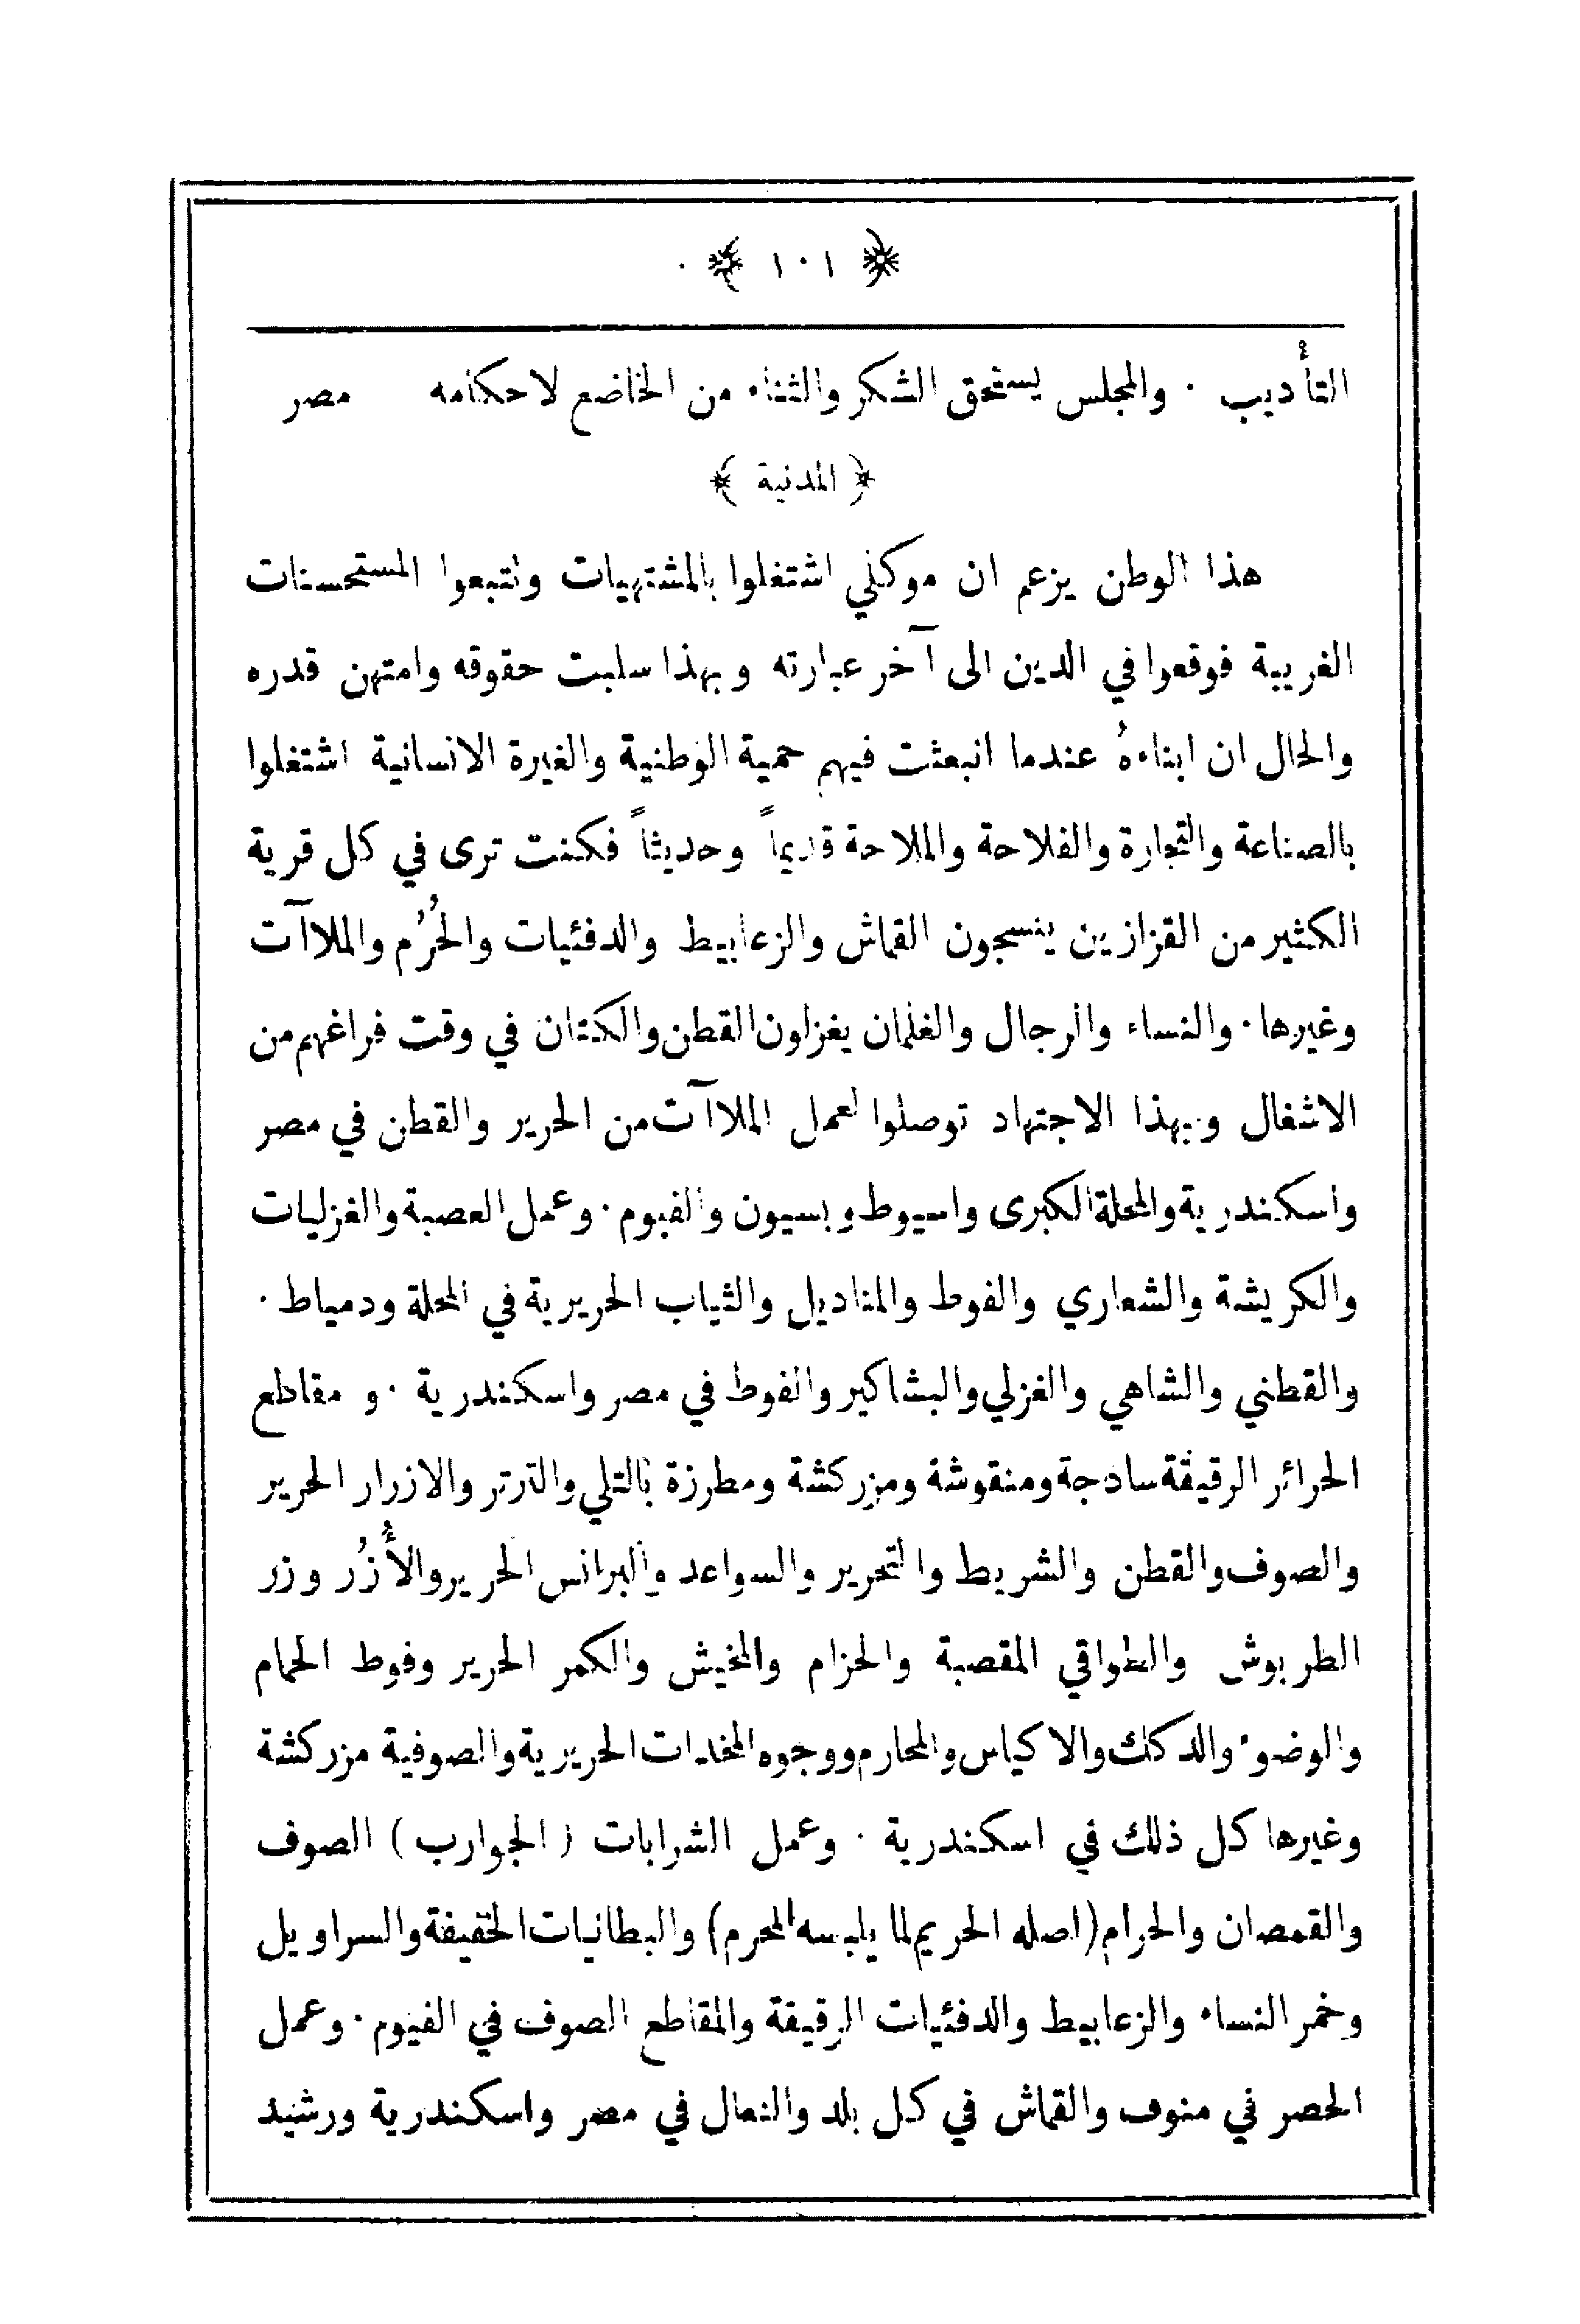 ﴿ ١٠١ ﴾
التأديب . والمجلس يستحق الشكر والثناء من الخاضع لاحكامه مصر
﴿ المدنية ﴾
هذا الوطن يزعم ان موكلي اشتغلوا بالمشتهيات واتبعوا المستحسنات
الغربية فوقعوا في الدين الى آخر عبارته وبهذا سلبت حقوقه وامتهن قدره
والحال ان ابناءهُ عندما انبعثت فيهم حمية الوطنية والغيرة الانسانية اشتغلوا
بالصناعة والتجارة والفلاحة والملاحة قديماً وحديثاً فكنت ترى في كل قرية
الكثير من القزازين ينسجون القماش والزعابيط والدفئيات والحُرُم والملاآت
وغيرها . والنساء والرجال والغلمان يغزلون القطن والكتان في وقت فراغهم من
الاشغال وبهذا الاجتهاد توصلوا لعمل الملاآت من الحرير والقطن في مصر
واسكندرية والمحلة الكبرى واسيوط وبسيون والفيوم . وعمل العصبة والغزليات
والكريشة والشعاري والفوط والمناديل والثياب الحريرية في المحلة ودمياط .
والقطني والشاهي والغزلي والبشاكير والفوط في مصر واسكندرية . و مقاطع
الحرائر الرقيقة سادجة ومنقوشة ومزركشة ومطرزة بالتلي والترتر والازرار الحرير
والصوف والقطن والشريط والتحرير والسواعد والبرانس الحرير والأُزُر وزر
الطربوش والطواقي المقصبة والحزام والمخيش والكمر الحرير وفوط الحمام
والوضوء والدكك والاكياس والمحارم ووجوه المخدات الحريرية والصوفية مزركشة
وغيرها كل ذلك في اسكندرية . وعمل الشرابات ( الجوارب ) الصوف
والقمصان والحرام (اصله الحريم لما يلبسه المحرم) والبطانيات الخفيفة والسراويل
وخمر النساء والزعابيط والدفئيات الرقيقة والمقاطع الصوف في الفيوم . وعمل
الحصر في منوف والقماش في كل بلد والنعال في مصر واسكندرية ورشيد